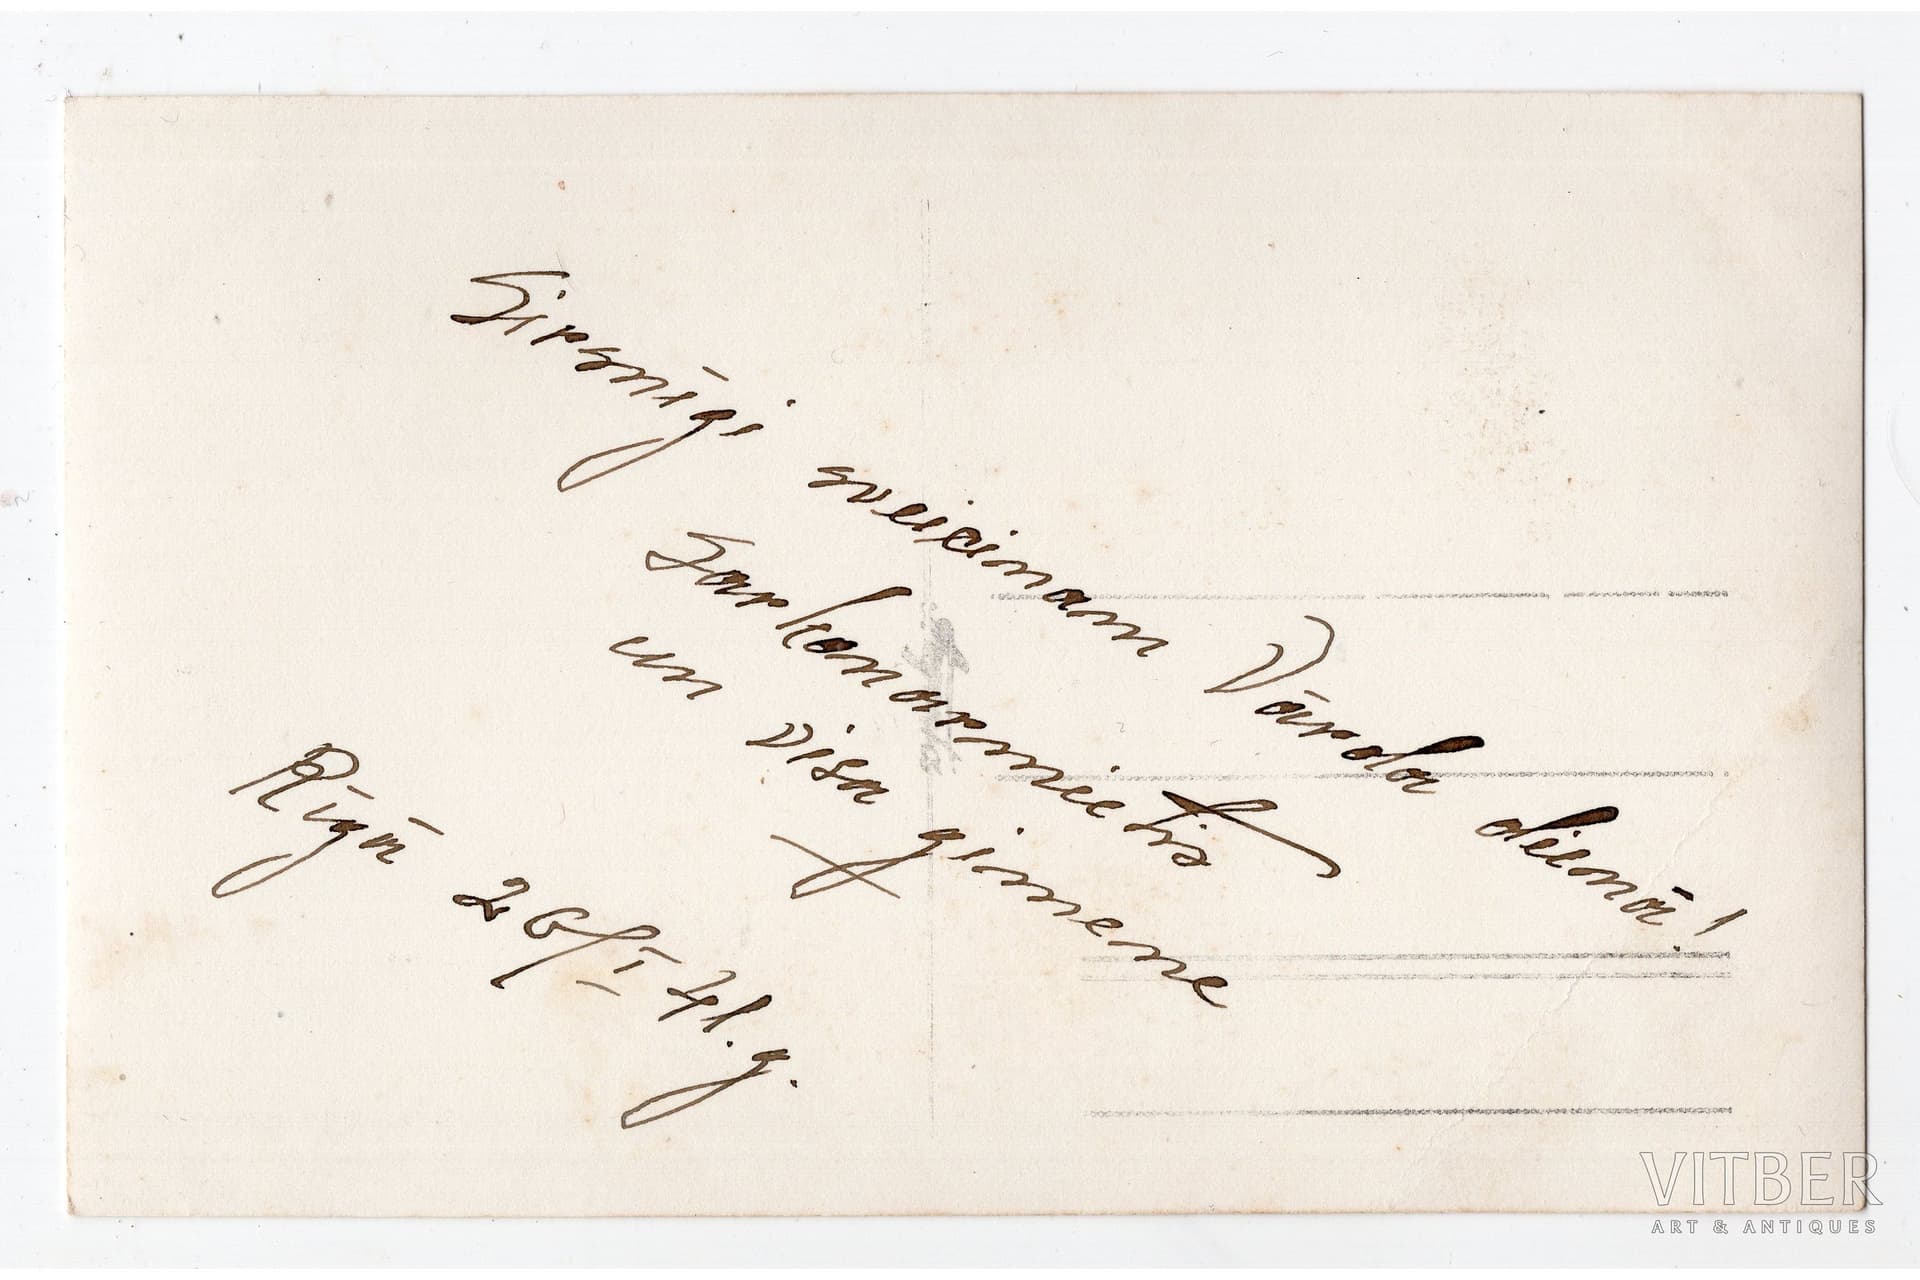 Sirsnīgi sveicinam Vārda dienā!
Sarkanarmietis
un visa gimene
Rīgā 26/I 41. g.
VITBER
ART & ANTIQUES